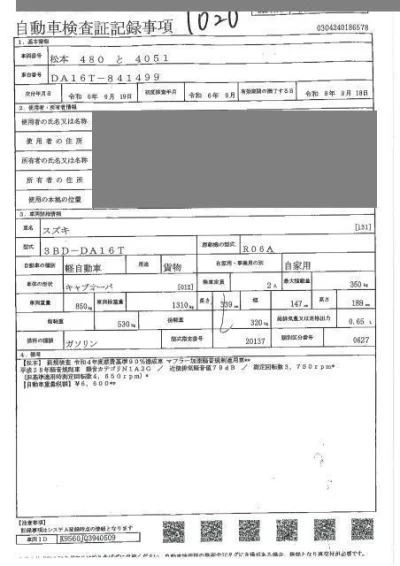 1020
自動車検査証記録事項
0304240186578
1. 基本情報
車両番号 松本 480 と 4051
車台番号 DA16T-841499
交付年月日 令和 6年 9月 19日 初度検査年月 令和 6年 9月 有効期間の満了する日 令和 8年 9月 18日
2. 使用者・所有者情報
使用者の氏名又は名称
使用者の住所
所有者の氏名又は名称
所有者の住所
使用の本拠の位置
3. 車両詳細情報
車名 スズキ [131]
型式 3BD-DA16T 原動機の型式 R06A
自動車の種別 軽自動車 用途 貨物 自家用・事業用の別 自家用
車体の形状 キャブオーバ [012] 乗車定員 2人 最大積載量 350kg
車両重量 850kg 車両総重量 1310kg 長さ 339cm 幅 147cm 高さ 189cm
前軸重 530kg 後軸重 320kg 総排気量又は定格出力 0.65L
燃料の種類 ガソリン 型式指定番号 20137 類別区分番号 0627
4. 備考
【松本】 新規検査 令和4年度燃費基準90%達成車 マフラー加速騒音規制適用車**
平成28年騒音規制車 騒音カテゴリN1A3G / 近接排気騒音値79dB / 測定回転数3,750rpm*
【自動車重量税額】 ¥6,600**
【注意事項】
車両ID K9560Q3940509